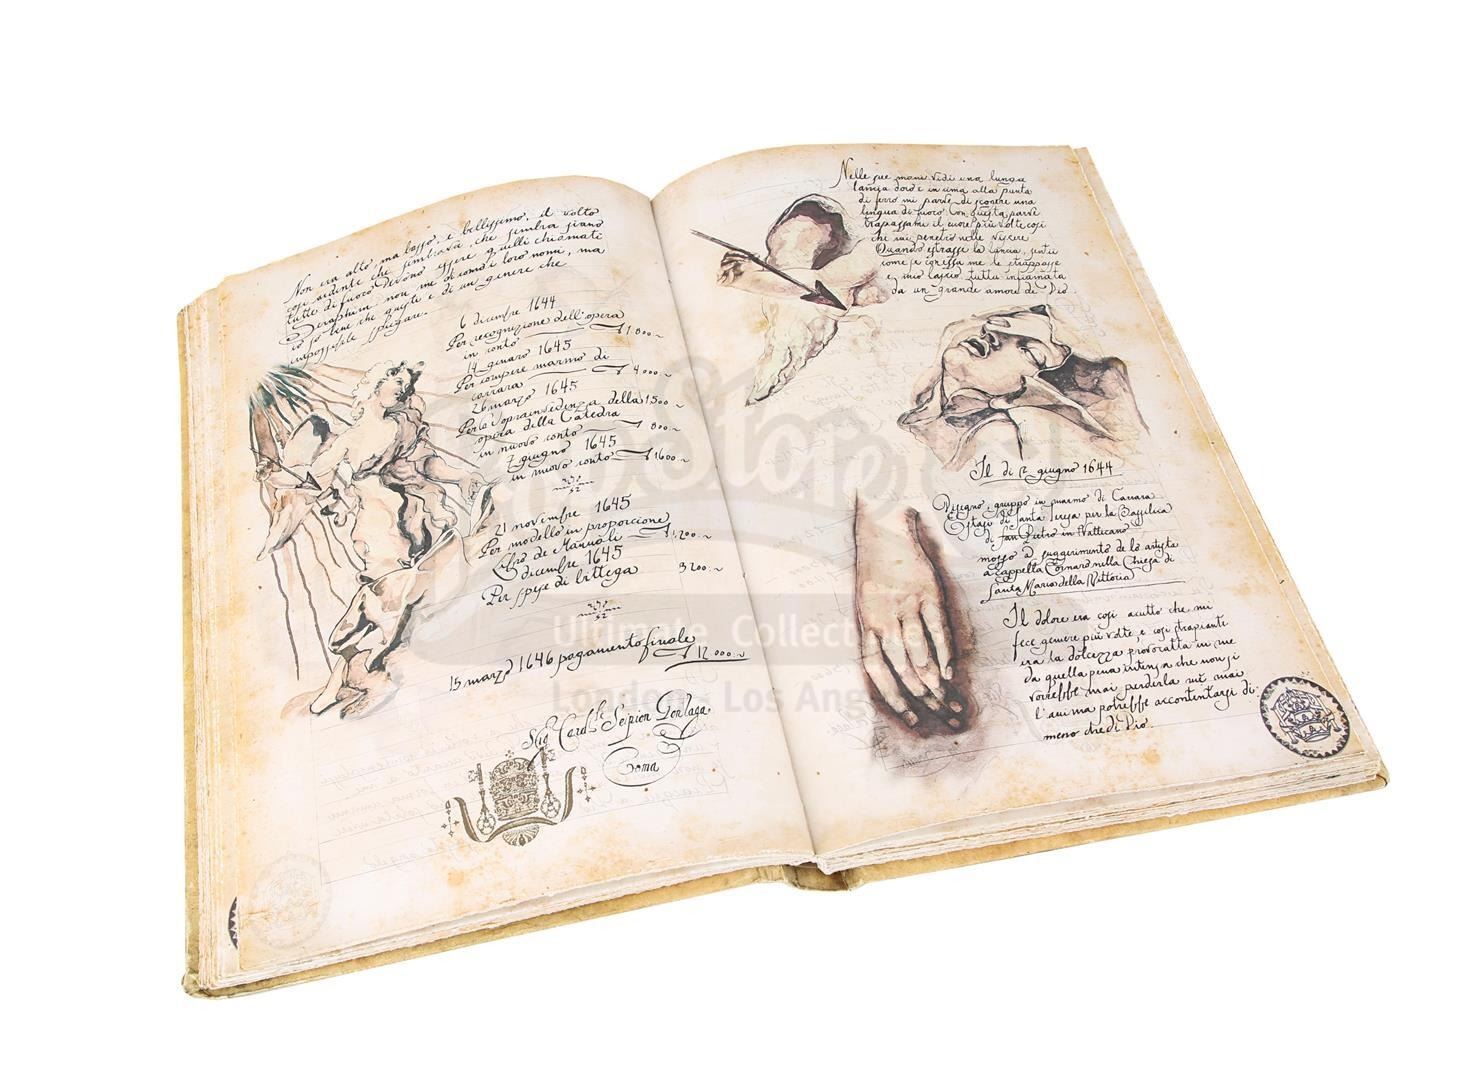 Non era alto, ma basso, e bellissimo, il volto
così ardente che sembrava che sembra siano
tutti di fuoco. Devono essere quelli chiamati
Seraphim non me dicono i loro nomi, ma
io so bene che questo e di un genere che
impossibile spiegare.
6 dicembre 1644
Per recognizione dell'opera
in conto 1800~
14 genaro 1645
Per compere marmo di
carrara 4000~
26 marzo 1645
Per la Soprainsedenza della 1500~
opera della Catedra
in nuovo conto 800~
7 giugno 1645
in nuovo conto 1600~
21 novembre 1645
Per modello in proporcione
de Manuoli 1,200~
dicembre 1645
Per spese di bittega 3200~
15 marzo 1646 pagamento finale
12000~
Card. Scipion Gonzaga
Roma
Nelle sue mani vidi una lunga
lancia d'oro e in cima alla punta
di ferro mi parve di scorere una
lingua di fuoco con questa parve
trapassami il cuore più volte così
che mi penetrò nelle viscere
Quando estrasse la lancia, sentii
come se con essa me le strappasse
e mio lascio tutta infiamata
da un grande amore di Dio
Il dì 12 giugno 1644
Disegno, gruppo in marmo di Carrara
Estasi di Santa Teresa per la Bassilica
di San Pietro in Vatticano
mosso a suggerimento de lo artista
a cappella Cornaro nella Chiesa di
Santa Maria della Vittoria
Il dolore era così acutto che mi
fece gemere più volte, e così strapiante
era la dolcezza provoratta in me
da quella pena intensa che non si
vorrebbe mai perderla né mai
l'anima potrebbe accontentarsi di
meno che di Dio.
Prop Store
Ultimate Collectibles
London - Los Angeles